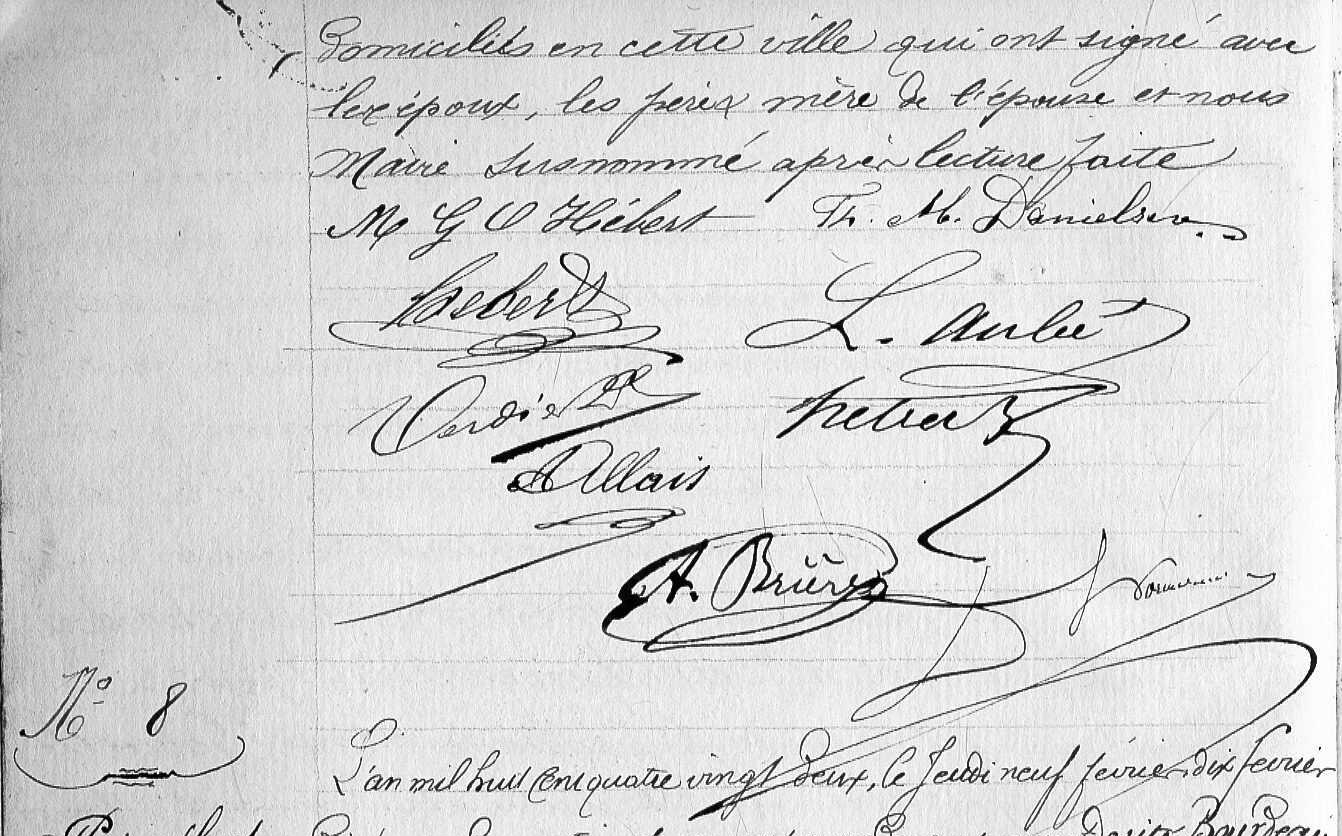 domiciliés en cette ville qui ont signé avec
les époux, les père & mère de l'épouse et nous
Maire susnommé après lecture faite
M G O Hébert Th. M. Danielsen
Hebert L. Aubé
Verdier
Hebert
Allais
A. Brière
No 8
L'an mil huit cent quatre vingt deux, le Jeudi neuf février, dix février